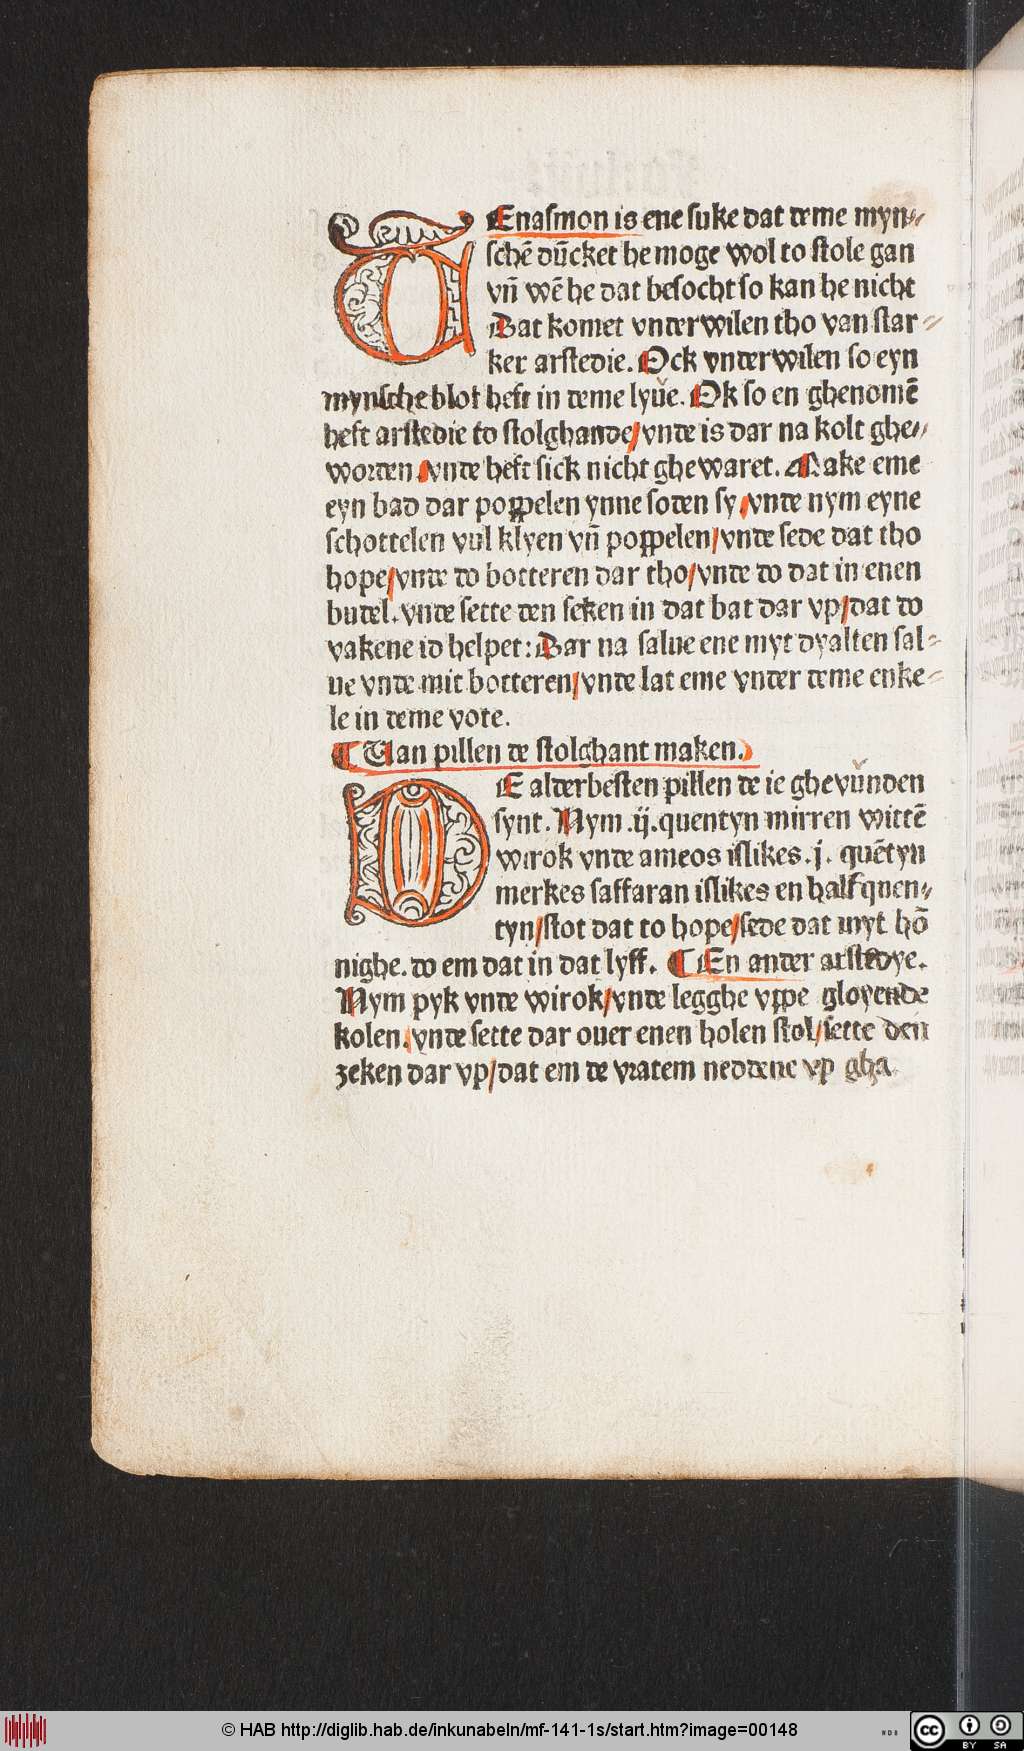 TEnasmon is ene suke dat deme myn⸗
schē dūcket he moge wol to stole gan
vñ wē he dat besocht so kan he nicht
Dat komet vnderwilen tho van star⸗
ker arstedie. Ock vnderwilen so eyn
mynsche blot heft in deme lyue. Ok so en ghenomē
heft arstedie to stolghande/vnde is dar na kolt ghe⸗
worden/vnde heft sick nicht ghewaret. Make eme
eyn bad dar poppelen ynne soden sy/vnde nym eyne
schottelen vul klyen vñ poppelen/vnde sede dat tho
hope/vnde do botteren dar tho/vnde do dat in enen
budel. vnde sette den seken in dat bat dar vp/dat do
vakene id helpet: Dar na salue ene myt dyalten sal⸗
ue vnde mit botteren/vnde lat eme vnder deme enke⸗
le in deme vote.
¶ Uan pillen de stolghant maken.
DE alderbesten pillen de ie ghevůnden
synt. Nym .ij. quentyn mirren wittē
wirok vnde ameos islikes .j. quētyn
merkes saffaran islikes en half quen⸗
tyn/stot dat to hope/sede dat myt hō
nighe. do em dat in dat lyff. ¶ En ander arstedye.
Nym pyk vnde wirok/vnde legghe vppe gloyende
kolen/vnde sette dar ouer enen holen stol/sette den
zeken dar vp/dat em de vratem neddene vp gha
© HAB http://diglib.hab.de/inkunabeln/mf-141-1s/start.htm?image=00148
WDB
cc BY SA